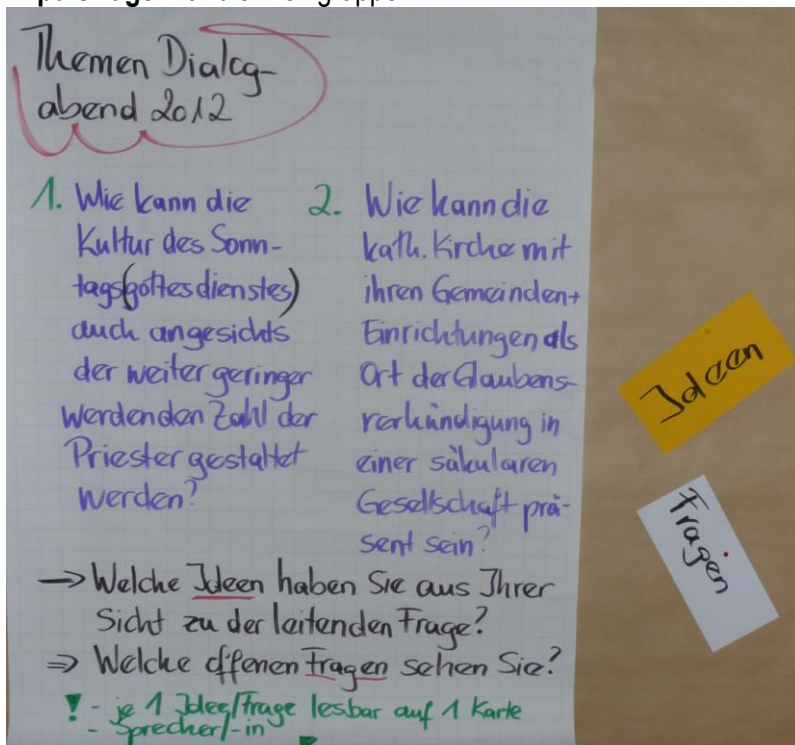 Themen Dialog-
abend 2012
1. Wie kann die
Kultur des Sonn-
tags(gottesdienstes)
auch angesichts
der weiter geringer
werdenden Zahl der
Priester gestaltet
werden?
2. Wie kann die
kath. Kirche mit
ihren Gemeinden+
Einrichtungen als
Ort der Glaubens-
verkündigung in
einer säkularen
Gesellschaft prä-
sent sein?
→ Welche Ideen haben Sie aus Ihrer
Sicht zu der leitenden Frage?
⇒ Welche offenen Fragen sehen Sie?
! - je 1 Idee/Frage lesbar auf 1 Karte
- Sprecher/-in
Ideen
Fragen